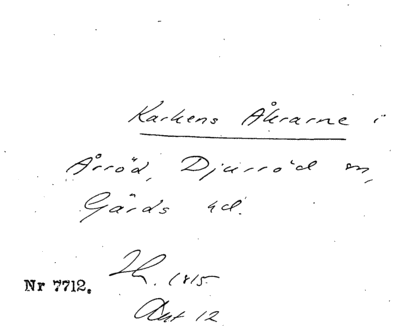 Karkens Åkrarne i
Årröd, Djurröd sn,
Gärds hd.
Nr 7712. Th. 1815
Akt 12